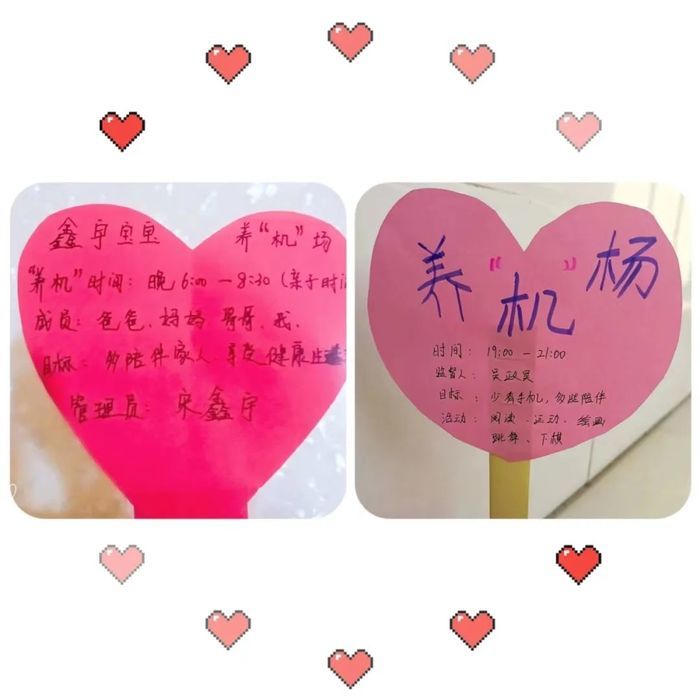 鑫宇宝宝 养“机”场
“养机”时间：晚6:00—8:30（亲子时间
成员：爸爸、妈妈 哥哥、我.
目标：多陪伴家人、享受健康生活
管理员：宋鑫宇
养“机”杨
时间：19:00—21:00
监督人：吴政昊
目标：少看手机，多些陪伴
活动：阅读、运动、绘画
跳舞、下棋